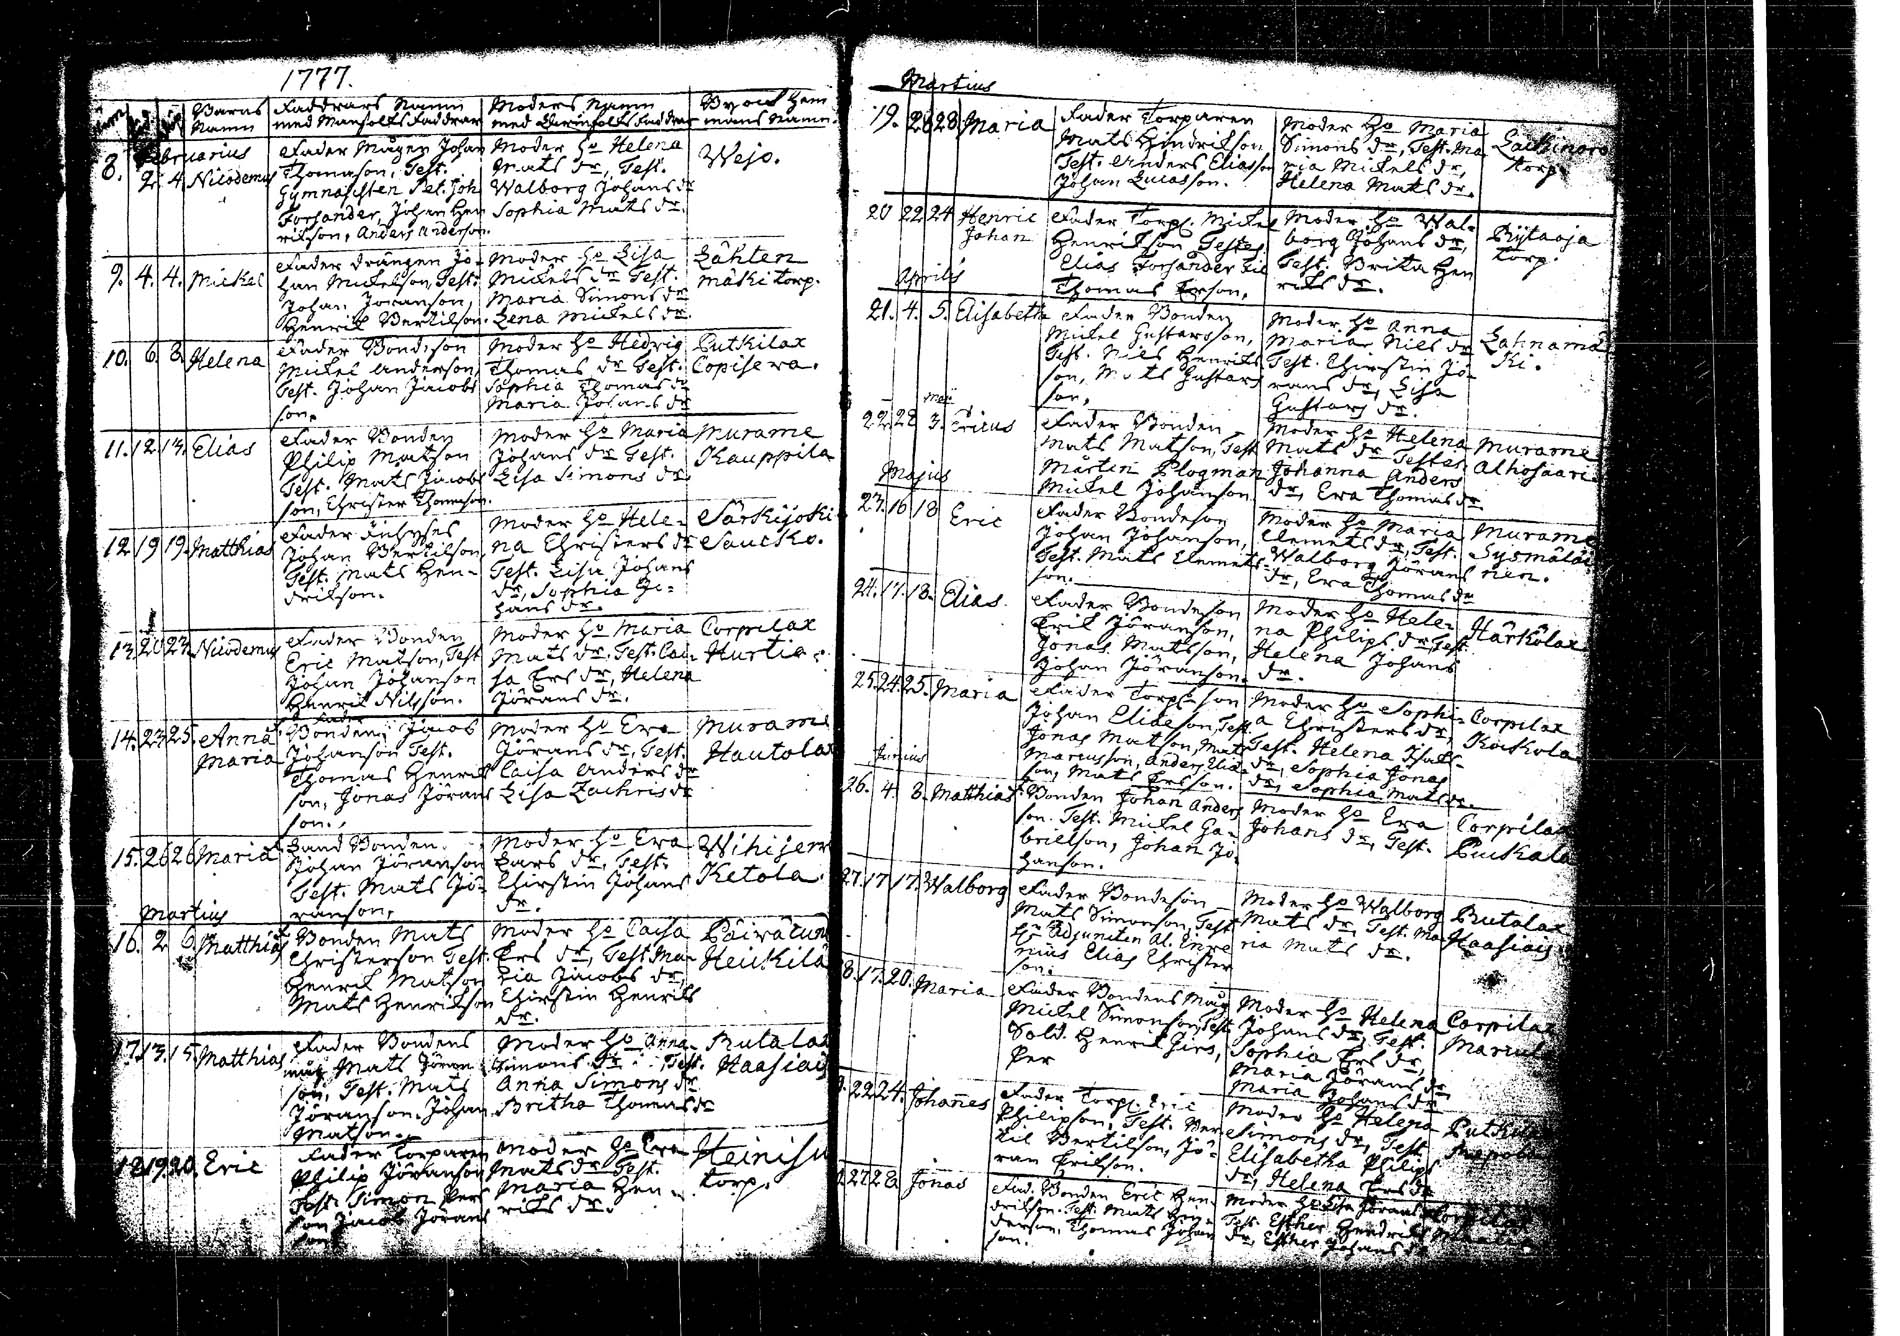 1777.
Barns Namn
Faddrars Namn med Manfolks Faddrar
Moders Namn med Qvinfolks Faddrar
Byens Hem mans Namn.
Februarius
8. 2. 4. Nicodemus
Fader Mågen Johan
Thomason, Test.
Gymnasisten Pet. Joh
Forsander, Johan Hen
rikson, Anders Anderson.
Moder H:o Helena
Mats dr, Test.
Walborg Johans dr
Sophia Mats dr.
Wejo.
9. 4. 4. Mickel
Fader Drängen Jo-
han Mickelson, Test.
Johan Jöranson,
Henrik Bertilson.
Moder H:o Lisa
Mickels dr Test.
Maria Simons dr
Lena Mickels dr.
Lähten
mäki torp.
10. 6. 8. Helena
Fader Bond:son
Mickel Anderson,
Test. Johan Jacobs
son.
Moder H:o Hedvig
Thomas dr Test.
Sophia Thomas dr
Maria Johans dr
Putkilax
Copisera.
11. 12. 13. Elias
Fader Bonden
Philip Matson
Test. Mats Jacobs
son, Christer Thomason.
Moder H:o Maria
Johans dr Test.
Lisa Simons dr.
Murame
Kauppila
12 19 19. Matthias
Fader Inhyses
Johan Bertilson,
Test. Mats Hen-
drikson.
Moder H:o Hele-
na Christers dr
Test. Lisa Johans
dr, Sophia Jo-
hans dr.
Särkijoki
Saucko.
13. 20 23. Nicodemus
Fader Bonden
Eric Matson, Test
Johan Johanson
Henrik Nilsson.
Moder H:o Maria
Mats dr. Test. Cai-
sa Ers dr, Helena
Jörans dr.
Corpilax
Hurtia
14. 23 25. Anna Maria
Fader
Bonden Jacob
Johanson Test.
Thomas Henrik
son, Jonas Jörans
son.
Moder H:o Eva
Jörans dr, Test.
Caisa Anders dr
Lisa Zachris dr
Murame
Hautola
15. 26 26 Maria
Land Bonden
Johan Jöranson
Test. Mats Jö-
ranson,
Moder H:o Eva
Lars dr, Test.
Chirstin Johans
dr.
Wihijerw
Ketola.
Martius
16. 2 6. Matthias
Bonden Mats
Christerson Test.
Henrik Matson
Mats Henrikson
Moder H:o Caisa
Ers dr, Test. Ma-
ria Jacobs dr,
Chirstin Henriks
dr.
Päiwätun
Heickilä
17. 13. 15. Matthias
Fader Bondens
måg Mats Jöran
son, Test. Mats
Jöranson. Johan
Matson.
Moder H:o Anna
Simons dr Test.
Anna Simons dr
Britha Thomas dr
Rutalax
Haasiais
18 19. 20. Eric
Fader Torparen
Philip Jöranson
Test. Simon Pers
son Jacob Jörans
son
Moder H:o Eva
Mats dr Test.
Maria Hen-
riks dr.
Heinisu
torp.
Martius
19. 28 28 Maria
Fader Torparen
Mats Hindrikson
Test. Anders Eliasson
Johan Lucasson.
Moder H:o Maria
Simons dr, Test. Ma
ria Mickels dr,
Helena Mats dr.
torp.
20 22 24 Henric Johan
Fader Torp. Mickel
Henrikson Testes
Elias Forsander
Thomas Erson,
Moder H:o Wal-
borg Johans dr,
Test. Brita Hen
riks dr.
Rytaoja
torp.
Aprilis
21. 4. 5. Elisabeth
Fader Bonden
Mickel Gustavsson,
Test. Nils Henriks
son, Mats Gustavs
son,
Moder H:o Anna
Maria Nils dr
Test. Chirstin Jö-
rans dr, Lisa
Gustavs dr.
Lahnamä
ki.
Maj
22. 28 3. Ericus
Fader Bonden
Mats Matson, Test
Mårten Plogman
Mickel Johanson
Moder H:o Helena
Mats dr Testes
Johanna Anders
dr, Eva Thomas dr
Murame
Alhosaari
Majus
23. 16 18 Eric
Fader Bondeson
Johan Johanson,
Test. Mats Clemets
son.
Moder H:o Maria
Clemets dr, Test.
Walborg Jörans
dr, Eva Thomas dr
Murame
Sysmäläi
nen.
24. 17. 18. Elias
Fader Bondeson
Erik Jöranson,
Jonas Matsson,
Johan Jöranson.
Moder H:o Hele-
na Philips dr, Test.
Helena Johans
dr.
Härkölax
25. 24. 25. Maria
Fader Torp:son
Johan Elideson, Test.
Jonas Matson, Mat
Marcusson, Anders Elia-
son, Mats Ersson.
Moder H:o Sophi-
a Christers dr,
Test. Helena Mats-
dr, Sophia Jonas
dr, Sophia Mats dr.
Corpilax
Koskola
Junius
26. 4 8. Matthias
Bonden Johan Anders
son. Test. Mickel Ga-
brielson, Johan Jo-
hanson.
Moder H:o Eva
Johans dr, Test.
Corpilax
27. 17 17. Walborg
Fader Bondeson
Mats Simonson, Test
Hr Adjuncten
Elias Christer
son.
Moder H:o Walborg
Mats dr, Test. Ma
ria Mats dr.
Rutalax
Haasiais
8. 17. 20. Maria
Fader Bondens Måg
Mickel Simonson, Test
Sold. Henrik Girs,
Per
Moder H:o Helena
Johans dr, Test.
Sophia Ers dr,
Maria Jörans dr
Maria Johans dr
Corpilax
22 24. Johannes
Fader Torp. Eric
Philipson, Test. Ber
til Bertilson, Jö-
ran Erikson.
Moder H:o Helena
Simons dr, Test.
Elisabetha Philips
dr, Helena Ers dr
27 28 Jonas
Fad. Bonden Eric Hen-
drikson. Test. Mats Hen-
derson, Thomas Johan
son.
Moder H:o Lisa Jörans
Test. Esther Hendriks
dr, Esther Johans dr
Corpilax